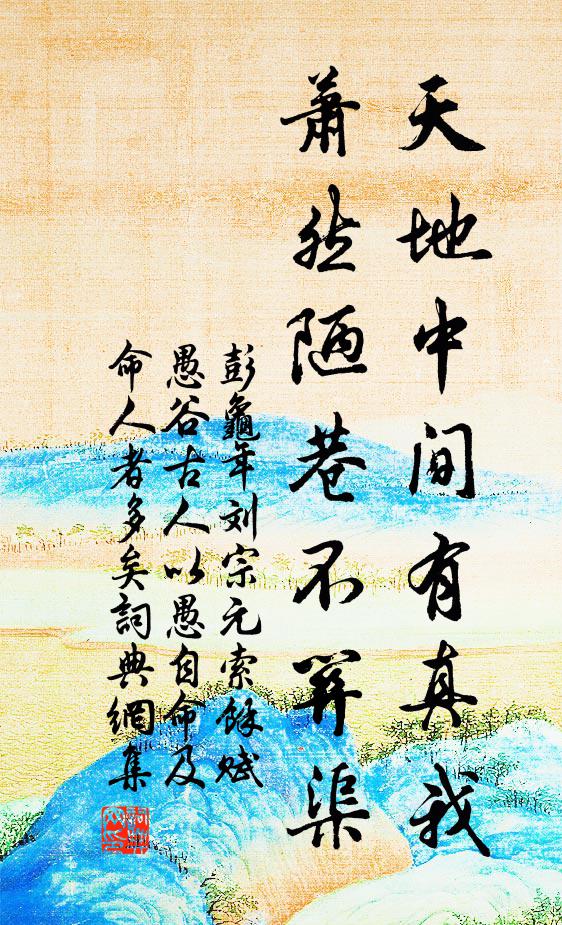 天地中间有真我
萧然陋巷不羿渠
彭龟年刘宗元索馀赋
愚谷古人以愚自命及
命人者多矣詞典網集